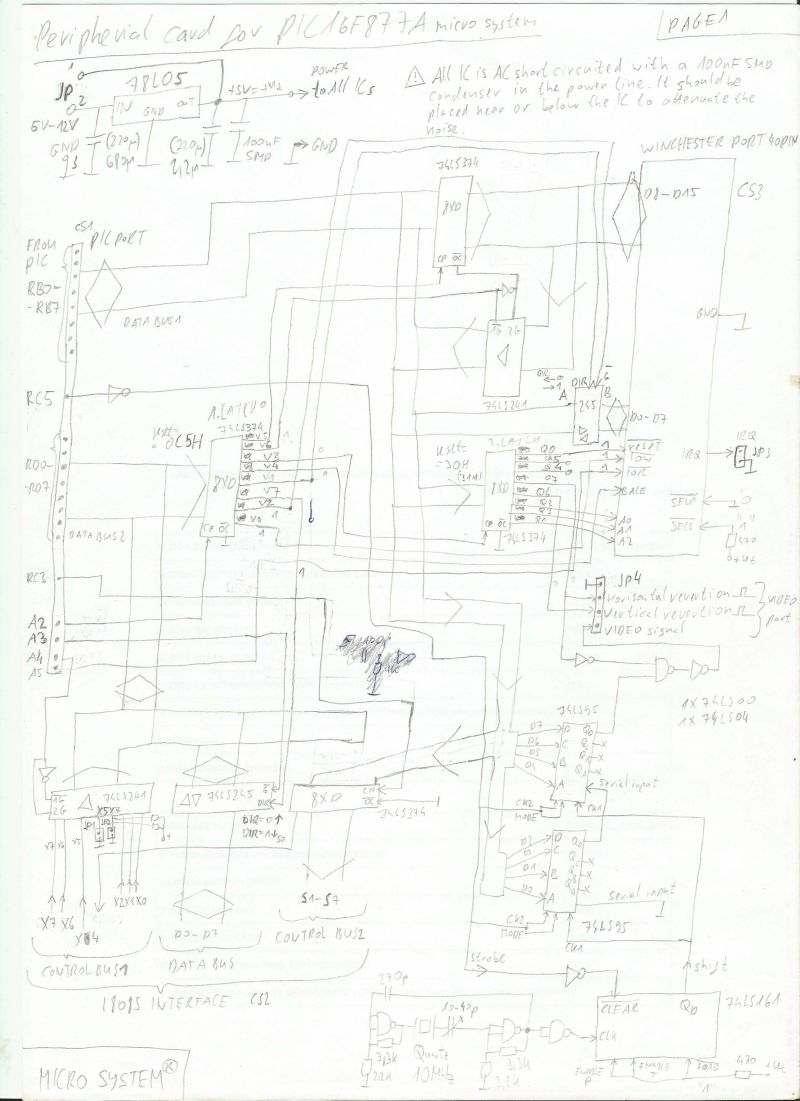 Peripherial card for PIC16F877A micro system
PAGE1
1
JP
2
78L05
IN
GND
OUT
+5V=+Ut
POWER
to All ICs
6V-12V
GND
(220µ)
680µ
(220µ)
2,2µ
100nF
SMD
GND
⚠ All IC is AC short circuited with a 100nF SMD
condenser in the power line. It should be
placed near or below the IC to attenuate the
noise.
WINCHESTER PORT 40PIN
CS3
D8-D15
74LS374
8XD
CP OC
CS1
PIC PORT
FROM
PIC
RB0-
-RB7
DATA BUS1
GND
1G 2G
74LS241
DIR
A
DIR
G
B
245
D0-D7
RC5
1. LATCH
74LS374
C5H
8XD
CP OC
V5
V6
V3
V4
V1
V7
V2
V0
2. LATCH
8XD
74LS374
Q0
Q5
Q4
Q7
Q6
Q2
Q3
Q1
reset
IOW
IOR
BALE
A0
A1
A2
IRQ
IRQ
JP3
"0"
"1"
470
+Ut
RD0-
-RD7
DATA BUS2
RC3
A2
A3
A4
A5
JP4
Horisontal revertion
Vertical revertion
VIDEO signal
VIDEO
port
1X 74LS00
1X 74LS04
74LS95
D7
D6
D5
D4
D
C
B
A
serial input
CK2
MODE
CK1
D3
D1
D
C
B
A
serial input
CK2
MODE
CK1
74LS95
1G
2G
74LS241
X5 X7
JP1
JP2
74LS245
G
DIR
DIR=0↑
DIR=1↓
8XD
CP
OC
74LS374
X7
X6
X5
X7 X6
X4
X2 X1 X0
D0-D7
S1-S7
CONTROL BUS1
DATA BUS
CONTROL BUS2
I8085 INTERFACE CS2
strobe
shift
74LS161
CLEAR
QD
CLK
ENABLE
P
ENABLE
T
LOAD
"1"
470
+Ut
270p
10-40p
3,3k
2,2k
Quartz
10MHz
3,3k
2,2k
MICRO SYSTEM®